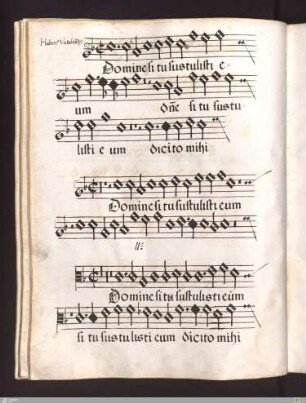 Domine si tu sustulisti e-
um dñe si tu sustu-
listi e um dicito mihi
Domine si tu sustulisti eum
Domine si tu sustulisti eum
si tu sustulisti eum dicito mihi